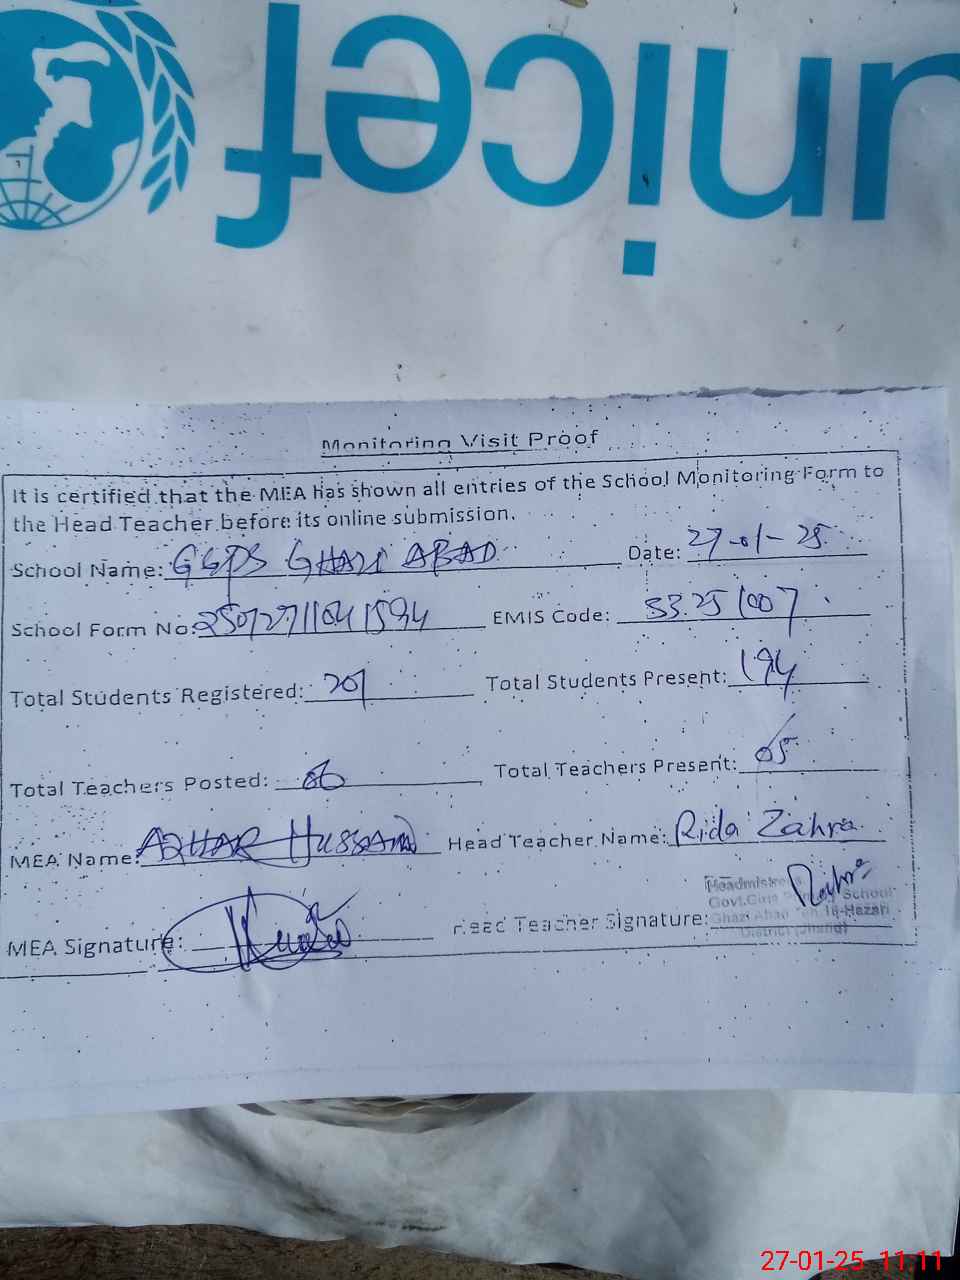 unicef
Monitoring Visit Proof
It is certified that the MEA has shown all entries of the School Monitoring Form to
the Head Teacher before its online submission.
School Name: GGPS GHAZI ABAD Date: 27-01-25
School Form No: EMIS Code: 33251007
Total Students Registered: 201 Total Students Present: 194
Total Teachers Posted: 06 Total Teachers Present: 05
MEA Name: AZHAR HUSSAIN Head Teacher Name: Rida Zahra
MEA Signature: Head Teacher Signature: Zahra
Headmistress
Govt.Girls Primary School
Ghazi Abad 18-Hazari
District Jhang
27-01-25 11:11